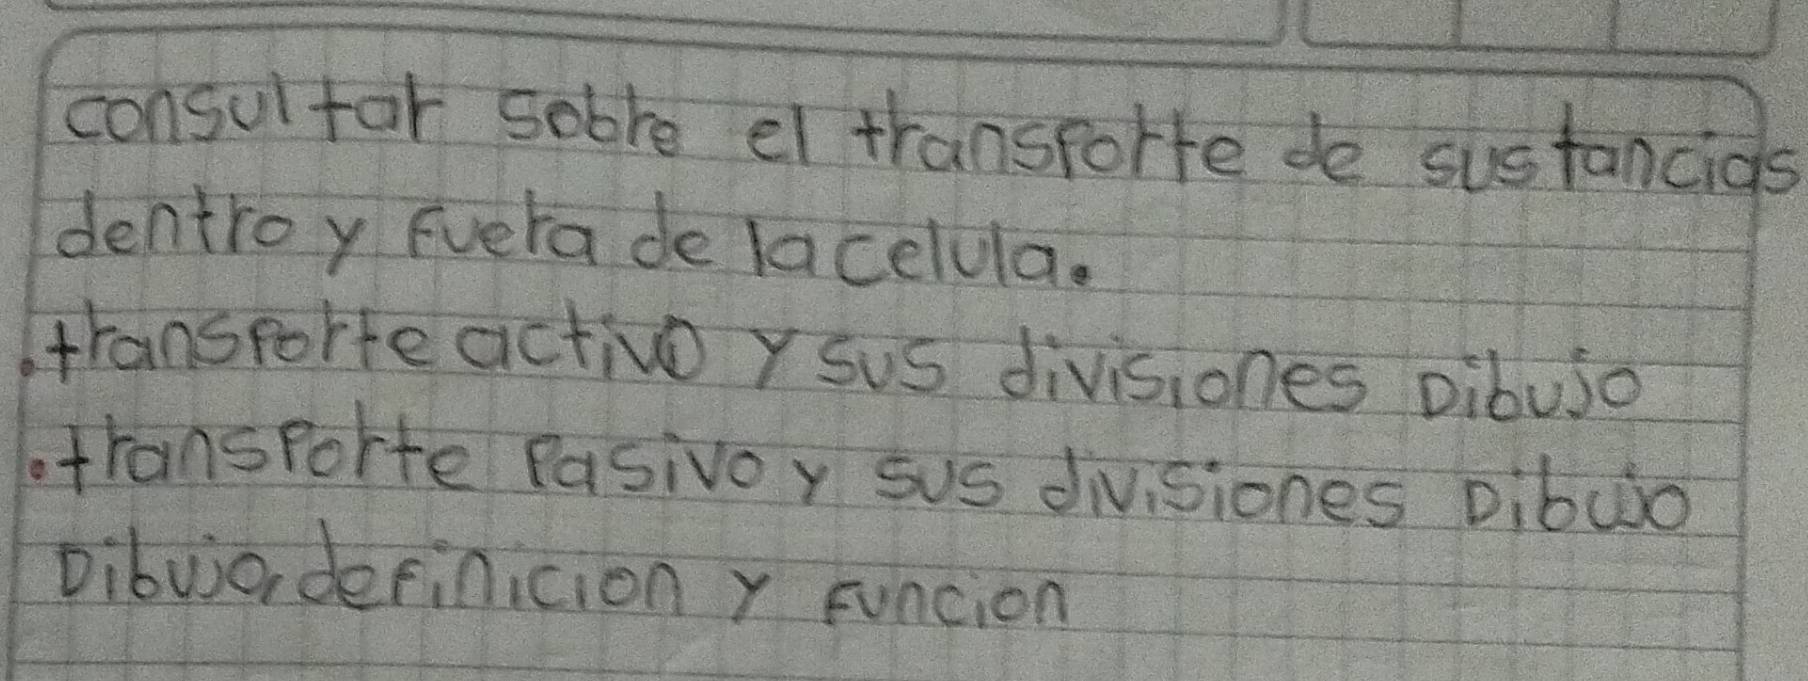 consultar sobre el transporte de sustancias
dentro y fuera de la celula.
.transporte activo y sus divisiones Dibujo
.transporte Pasivo y sus divisiones Dibujo
Dibujo, definicion y funcion